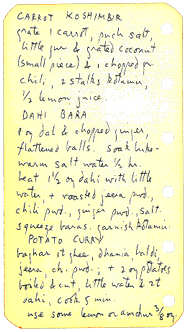 CARROT KOSHIMBIR
grate 1 carrot, pinch salt,
little gur & grated coconut
(small piece) & 1 chopped gr
chili, 2 stalks kotamir,
1/2 lemon juice.
DAHI BARA
8 oz dal & chopped ginger,
flattened balls. soak luke-
warm salt water 1/2 hr.
beat 1 1/2 oz dahi with little
water, + roasted jeera pwd,
chili pwd., ginger pwd, salt.
squeeze baras. garnish kotamir.
POTATO CURRY
baghar it ghee, dhania haldi
jeera, ch. pwd.; + 2 oz potatoes
boiled & cut, little water & 2t
dahi, cook 5 min.
use some lemon or amchur